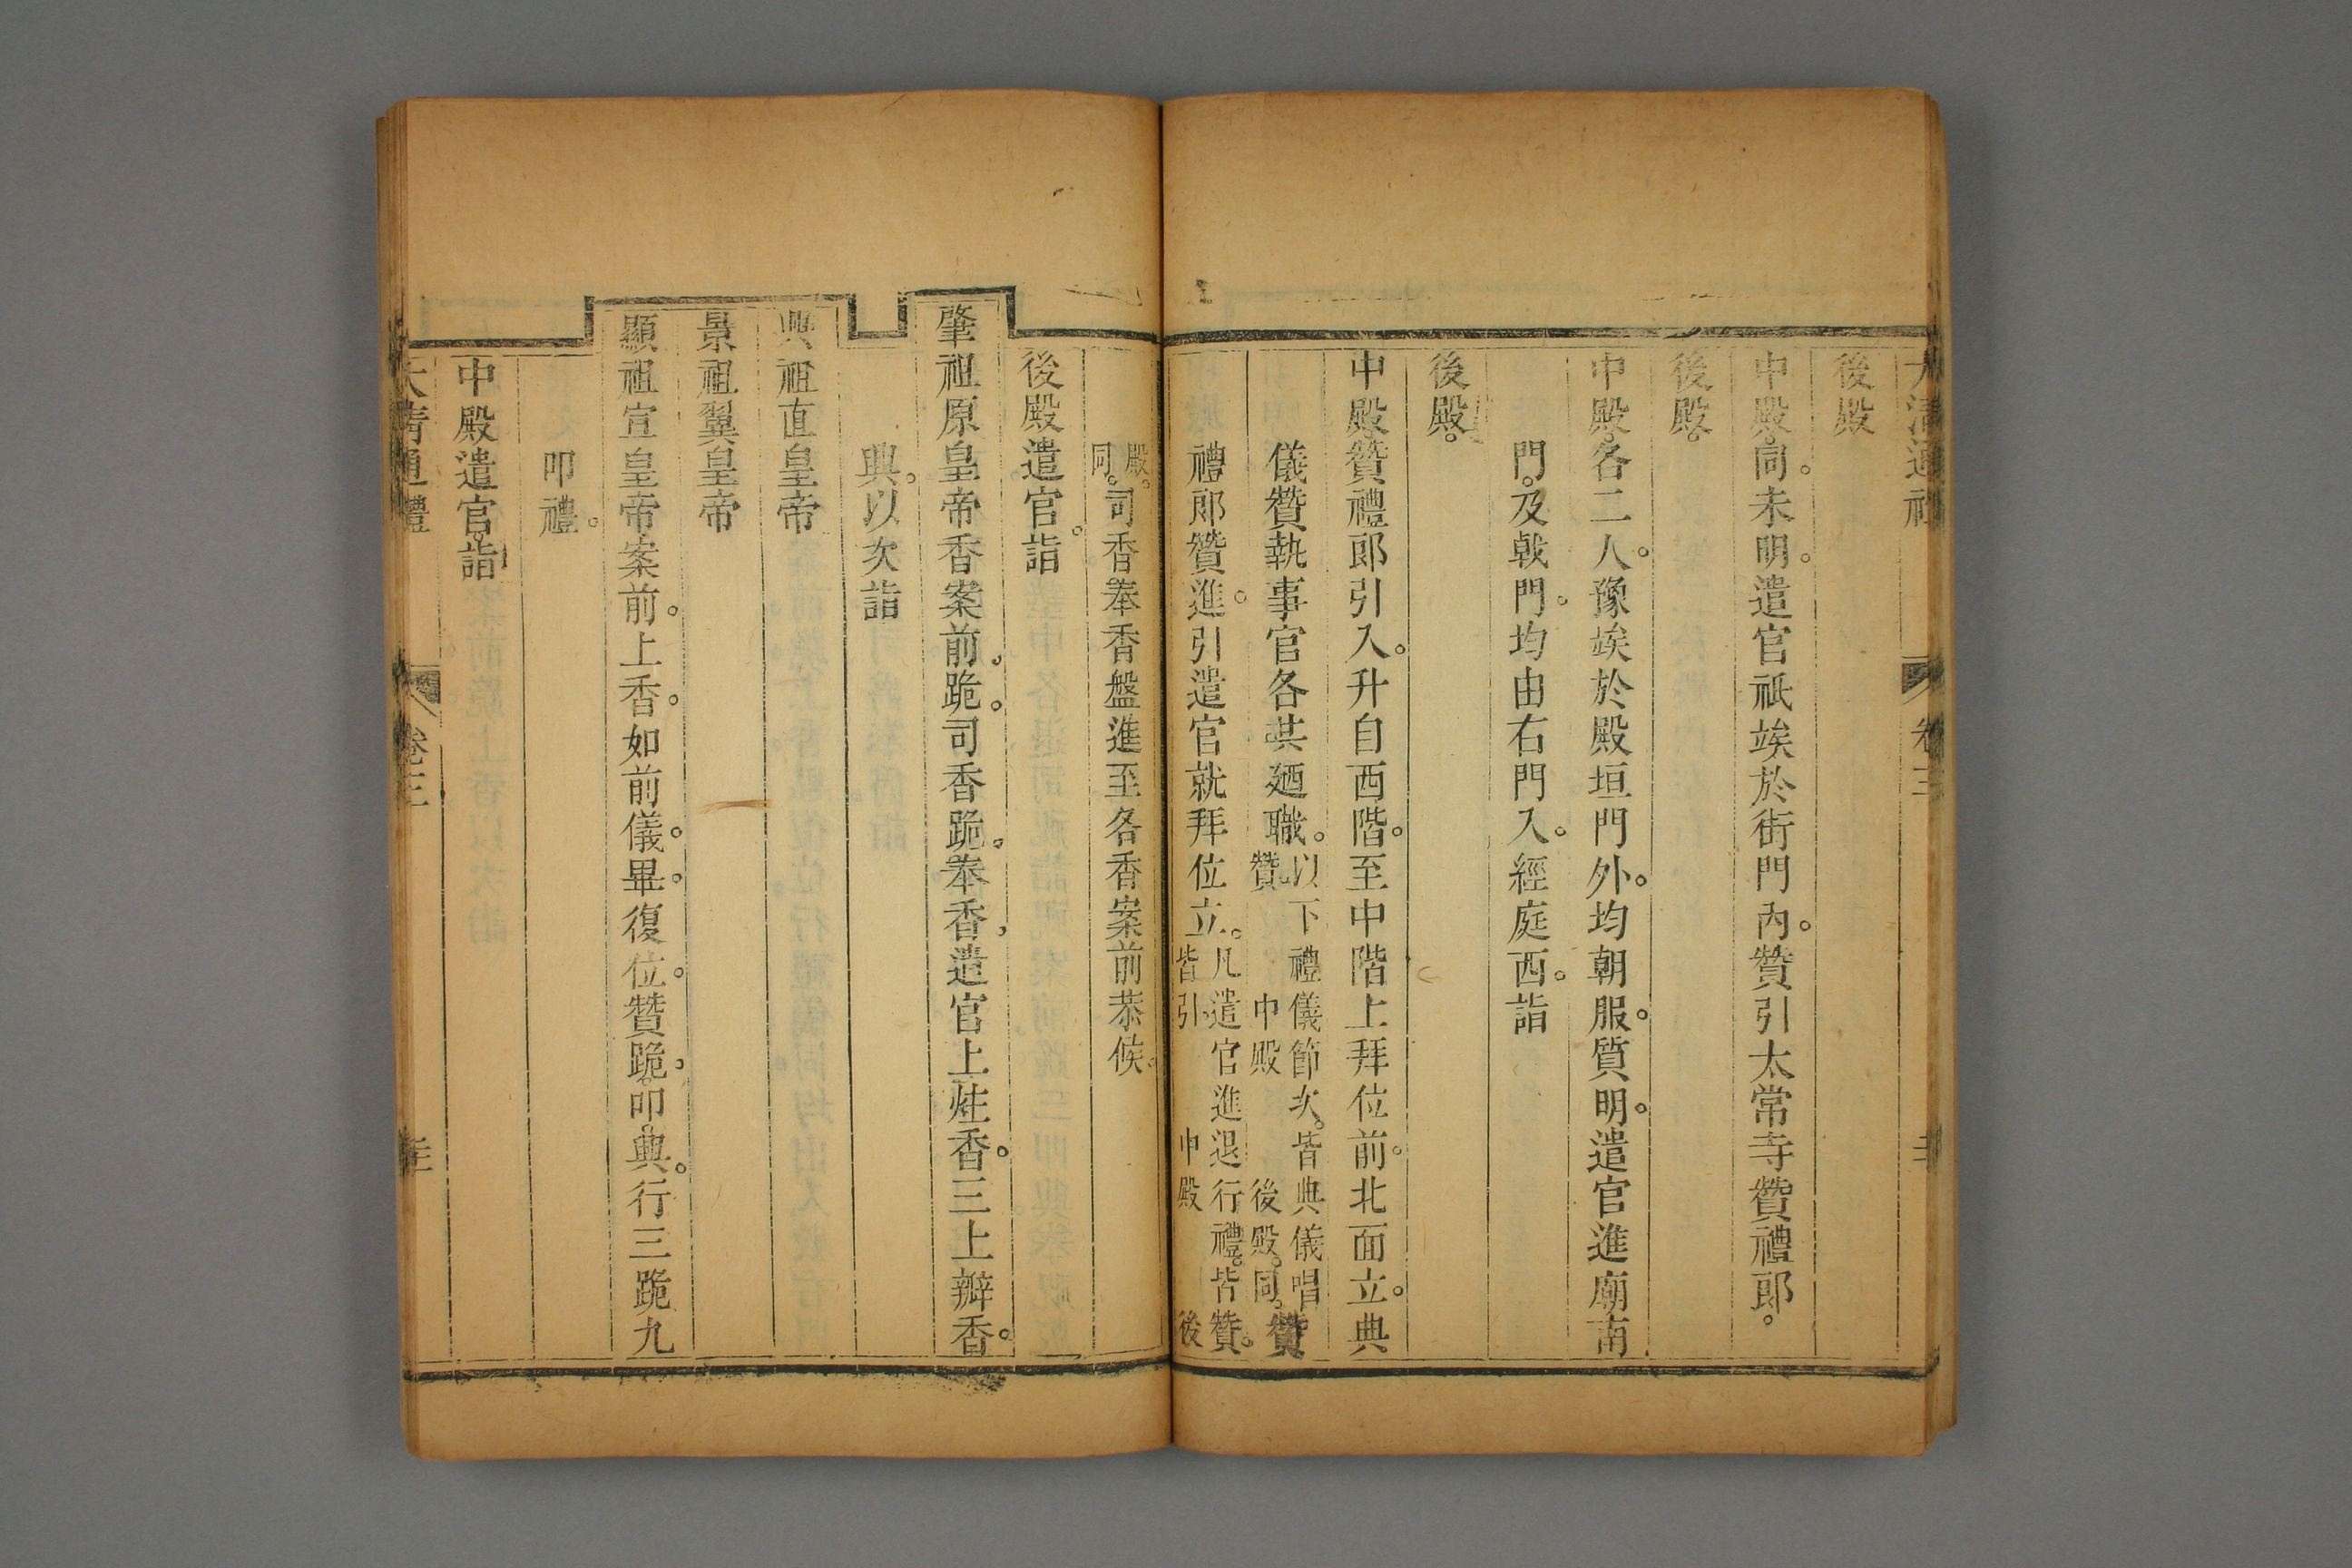 大清通禮 卷三
後殿
中殿。同。未明。遣官祇竢於街門內。贊引太常寺贊禮郎。
後殿。
中殿。各二人。豫竢於殿垣門外。均朝服。質明。遣官進廟南
門。及戟門。均由右門入。經庭西。詣
後殿。
中殿。贊禮郎引入。升自西階。至中階上拜位前。北面立。典
儀贊執事官各共廼職。以下禮儀節次。皆典儀唱贊。中殿後殿。同。贊
禮郎贊進。引遣官就拜位立。凡遣官進退行禮。皆贊。皆引。中殿後
殿。同。司香奉香盤進至各香案前恭候。
後殿遣官。詣
肇祖原皇帝香案前。跪。司香跪。奉香。遣官上炷香。三上瓣香。
興。以次詣
興祖直皇帝
景祖翼皇帝
顯祖宣皇帝案前。上香。如前儀。畢。復位。贊跪。叩。興。行三跪九
叩禮。
中殿遣官。詣
大清通禮 卷三